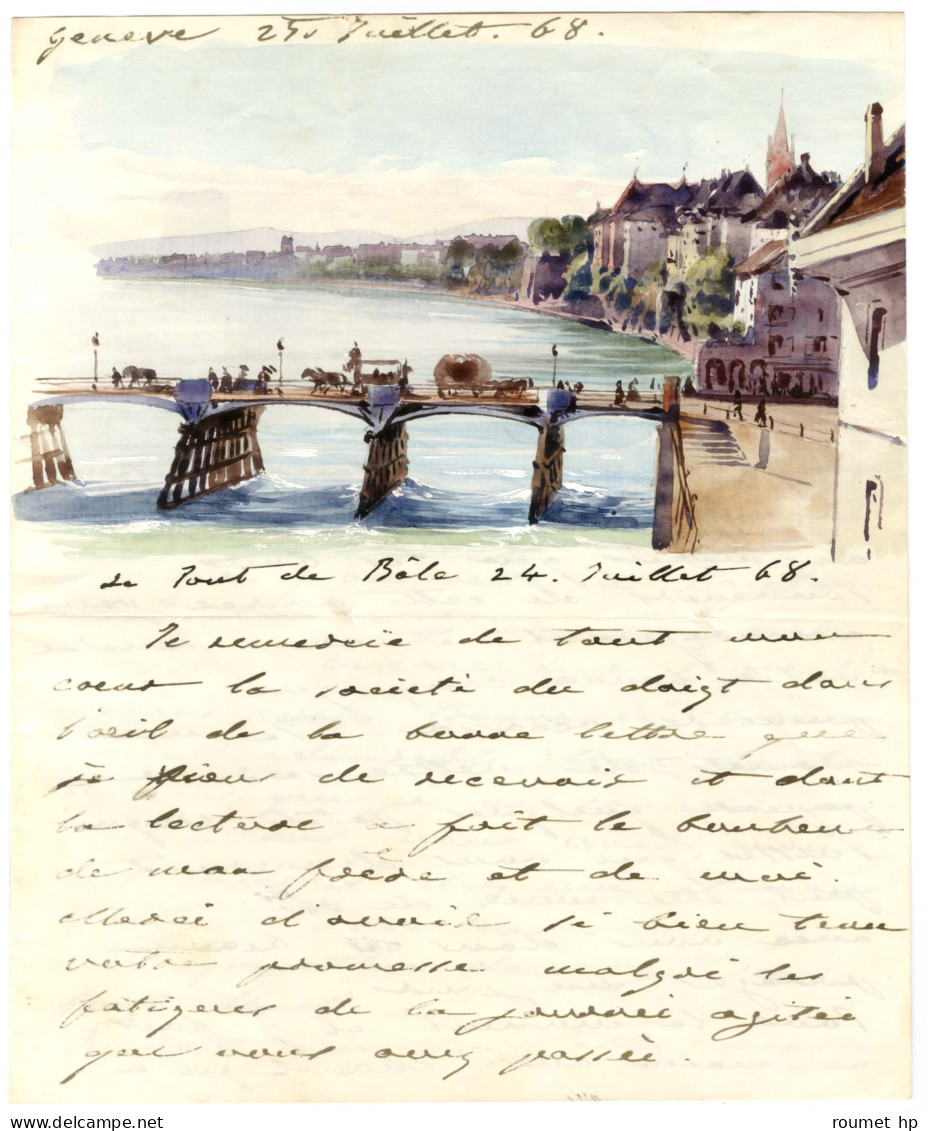 Geneve 25 Juillet. 68.
Le Pont de Bâle 24. Juillet 68.
Je remercie de tout mon
coeur la société du doigt dans
l'oeil de la bonne lettre que
je viens de recevoir et dont
la lecture a fait le bonheur
de mon frère et de moi.
Merci d'avoir si bien tenu
votre promesse malgré les
fatigues de la journée agitée
que vous avez passée.
roumet hp